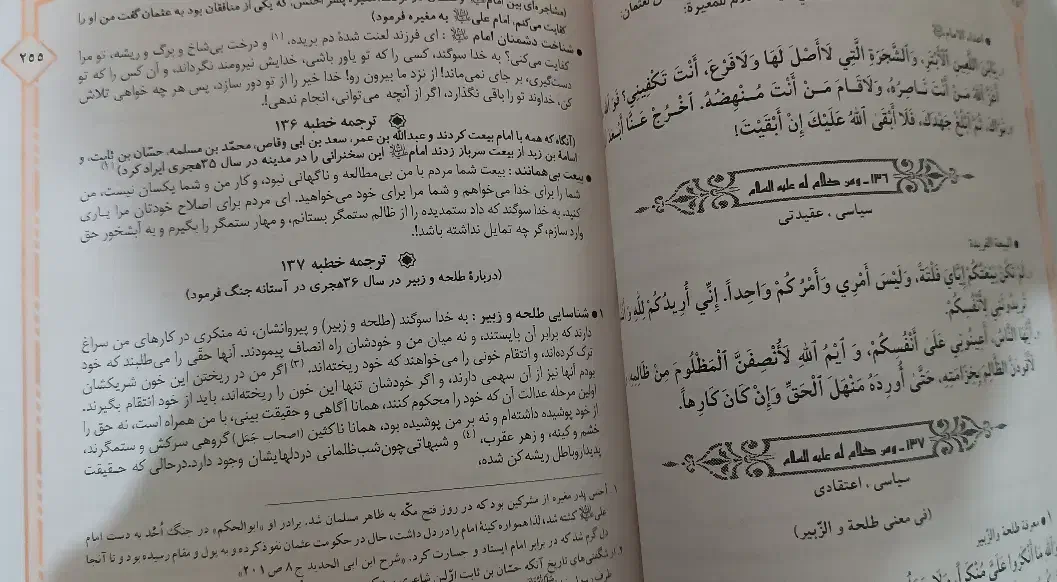 للمغيرة:
يَابْنَ اللَّعِينِ الْأَبْتَرِ، وَالشَّجَرَةِ الَّتِي لَاأَصْلَ لَهَا وَلَافَرْعَ، أَنْتَ تَكْفِينِي؟
اللهُ مَنْ أَنْتَ نَاصِرُهُ، وَلَاقَامَ مَنْ أَنْتَ مُنْهِضُهُ. اخْرُجْ عَنَّا
ثُمَّ ابْلُغْ جَهْدَكَ، فَلَا أَبْقَى اللهُ عَلَيْكَ إِنْ أَبْقَيْتَ!
۱۳۶ـ ومن كلام له عليه السلام
سیاسی . عقیدتی
• البيعة الفريدة
لَمْ تَكُنْ بَيْعَتُكُمْ إِيَّايَ فَلْتَةً، وَلَيْسَ أَمْرِي وَأَمْرُكُمْ وَاحِداً. إِنِّي أُرِيدُكُمْ لِلّهِ
تُرِيدُونَنِي لِأَنْفُسِكُمْ.
أَيُّهَا النَّاسُ، أَعِينُونِي عَلَى أَنْفُسِكُمْ، وَ ايْمُ اللهِ لَأُنْصِفَنَّ الْمَظْلُومَ مِنْ ظَالِمِهِ
الظَّالِمَ بِخِزَامَتِهِ، حَتَّى أُورِدَهُ مَنْهَلَ الْحَقِّ وَإِنْ كَانَ كَارِهاً.
۱۳۷ـ ومن كلام له عليه السلام
سیاسی . اعتقادی
(في معنى طلحة و الزّبير)
۱ • معرفة طلحة والزّبير
وَاللهِ مَا أَنْكَرُوا عَلَيَّ مُنْكَراً،
۲۵۵
کفایت می‌کنم، امام علی ﷺ به مغیره فرمود)
• شناخت دشمنان امام ﷺ : ای فرزند لعنت شدهٔ دم بریده، (۱) و درخت بی‌شاخ و برگ و ریشه، تو مرا
کفایت می‌کنی؟ به خدا سوگند، کسی را که تو یاور باشی، خدایش نیرومند نگرداند، و آن کس را که تو
دست‌گیری، بر جای نمی‌ماند! از نزد ما بیرون رو! خدا خیر را از تو دور سازد، پس هر چه خواهی تلاش
کن، خداوند تو را باقی نگذارد، اگر از آنچه می‌توانی، انجام ندهی!.
ترجمه خطبه ۱۳۶
(آنگاه که همه با امام بیعت کردند و عبدالله بن عمر، سعد بن ابی وقاص، محمّد بن مسلمه، حسّان بن ثابت، و
اسامة بن زید از بیعت سرباز زدند امام ﷺ این سخنرانی را در مدینه در سال ۳۵هجری ایراد کرد)
• بیعت بی‌همانند : بیعت شما مردم با من بی‌مطالعه و ناگهانی نبود، و کار من و شما یکسان نیست، من
شما را برای خدا می‌خواهم و شما مرا برای خود می‌خواهید. ای مردم برای اصلاح خودتان مرا یاری
کنید. به خدا سوگند که داد ستمدیده را از ظالم ستمگر بستانم، و مهار ستمگر را بگیرم و به آبشخور حق
وارد سازم، گر چه تمایل نداشته باشد!.
ترجمه خطبه ۱۳۷
(دربارهٔ طلحه و زبیر در سال ۳۶هجری در آستانه جنگ فرمود)
۱ • شناسایی طلحه و زبیر : به خدا سوگند (طلحه و زبیر) و پیروانشان، نه منکری در کارهای من سراغ
دارند که برابر آن بایستند، و نه میان من و خودشان راه انصاف پیمودند. آنها حقّی را می‌طلبند که خود
ترک کرده‌اند، و انتقام خونی را می‌خواهند که خود ریخته‌اند. (۳) اگر من در ریختن این خون شریکشان
بودم آنها نیز از آن سهمی دارند، و اگر خودشان تنها این خون را ریخته‌اند، باید از خود انتقام بگیرند.
اولین مرحله عدالت آن که خود را محکوم کنند، همانا آگاهی و حقیقت بینی، با من همراه است، نه حق را
از خود پوشیده داشته‌ام و نه بر من پوشیده بود، همانا ناکثین (اصحاب جَمَل) گروهی سرکش و ستمگرند،
خشم و کینه، و زهر عقرب، (۴) و شبهاتی چون شب ظلمانی در دلهایشان وجود دارد. درحالی که حقیقت
پدیدار و باطل ریشه کن شده،
۱. أخنس پدر مغیره از مشرکین بود که در روز فتح مکّه به ظاهر مسلمان شد. برادر او «ابوالحکم» در جنگ اُحُد به دست امام
علی ﷺ کشته شد، لذا همواره کینهٔ امام را در دل داشت، حال در حکومت عثمان نفوذ کرده و به پول و مقام رسیده بود و تا آنجا
دل گرم شد که در برابر امام ایستاد و جسارت کرد. «شرح ابن ابی الحدید ج ۸ ص ۲۰۱»
شگفتی‌های تاریخ آنکه حسّان بن ثابت اوّلین شاعری